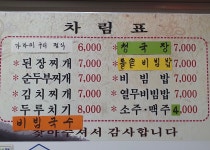 차림표
가자미구이 정식 6,000 *청국장 7,000
*된장찌개 7,000 *돌솥비빔밥 7,000
*순두부찌개 7,000 *비빔밥 7,000
*김치찌개 7,000 *열무비빔밥 7,000
*두루치기 8,000 *소주·맥주 4,000
비빔국수
찾아주셔서 감사합니다